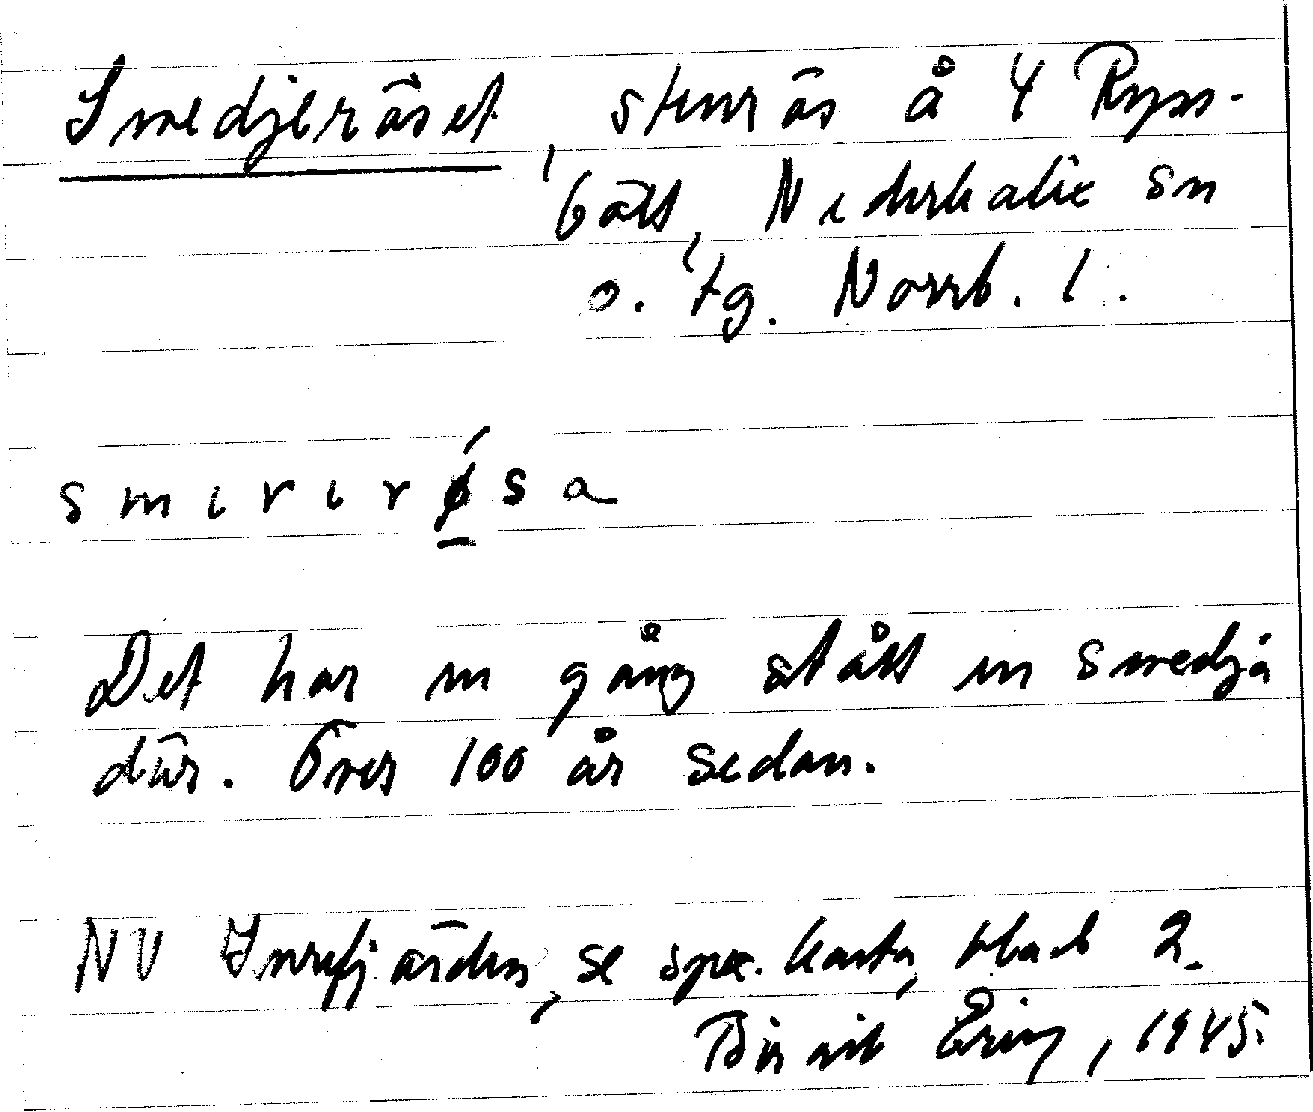 Smedjeröset, stenrös å 4 Ryss-
bält, Nederkalix sn
o. tg. Norrb. l.
smırırǿ̲sa
Det har en gång stått en smedja
där. Över 100 år sedan.
NV Inrefjärden, se spec. karta, blad 2.
Öring, 1945.